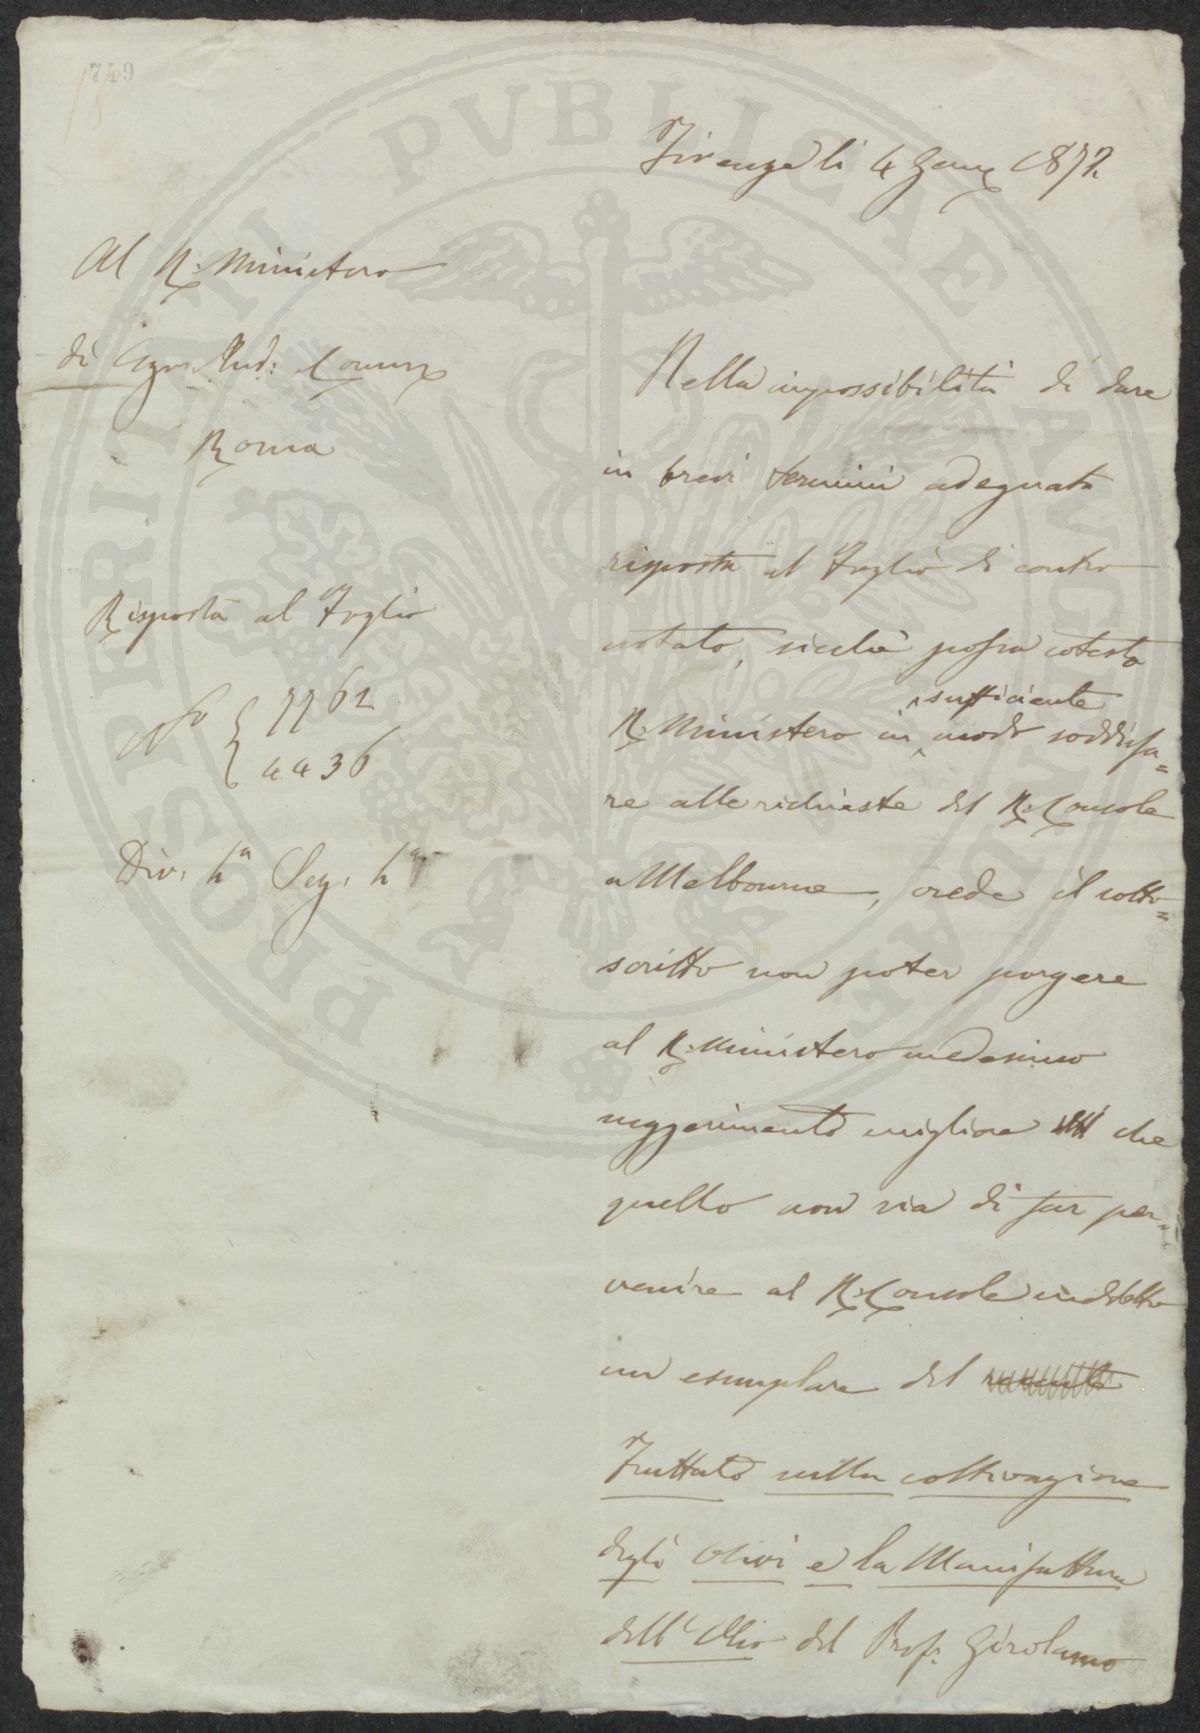 749
13
Firenze li 4 Genn. 1872.
Al R. Ministero
di Agr. Ind: Comm.
Roma
Risposta al Foglio
7762
4436
Div. Sez.
Nella impossibilità di dare
in brevi termini adeguata
risposta al Foglio di contro
notato, sicchè possa cotesto
sufficiente
R. Ministero in modo soddisfa=
re alle richieste del R. Console
a Melbourne, crede il sotto=
scritto non poter porgere
al R. Ministero medesimo
suggerimento migliore che
quello non sia di far per=
venire al R. Console suddetto
un esemplare del
Trattato sulla coltivazione
degli Olivi e la Manifattura
dell'Olio del Prof. Girolamo
PROSPERITATI PVBLICAE AVGENDAE